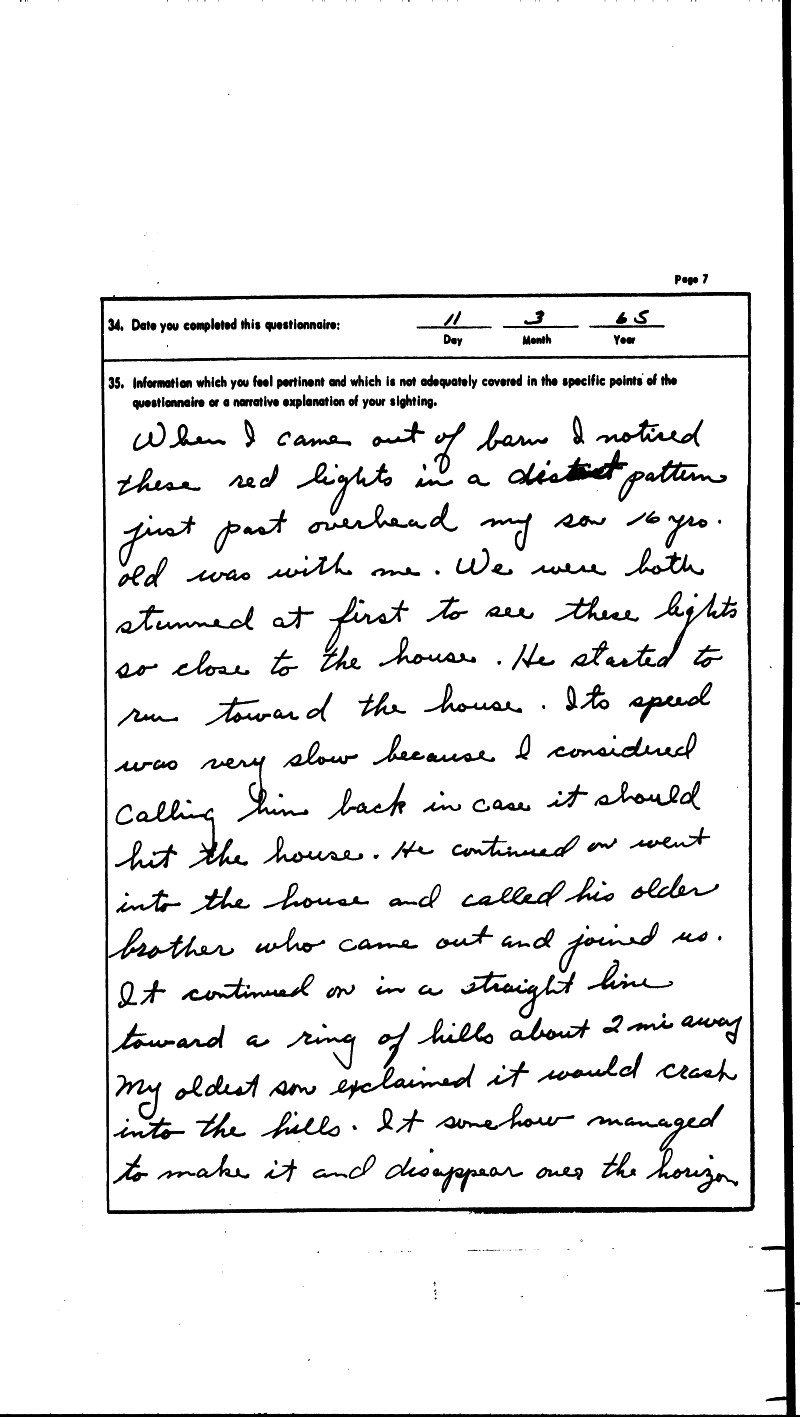 Page 7
34. Date you completed this questionnaire:
11 3 65
Day Month Year
35. Information which you feel pertinent and which is not adequately covered in the specific points of the
questionnaire or a narrative explanation of your sighting.
When I came out of barn I noticed
these red lights in a distinct pattern
just past overhead my son 16 yrs.
old was with me. We were both
stunned at first to see these lights
so close to the house. He started to
run toward the house. Its speed
was very slow because I considered
calling him back in case it should
hit the house. He continued on went
into the house and called his older
brother who came out and joined us.
It continued on in a straight line
toward a ring of hills about 2 mi away
My oldest son exclaimed it would crash
into the hills. It somehow managed
to make it and disappear over the horizon